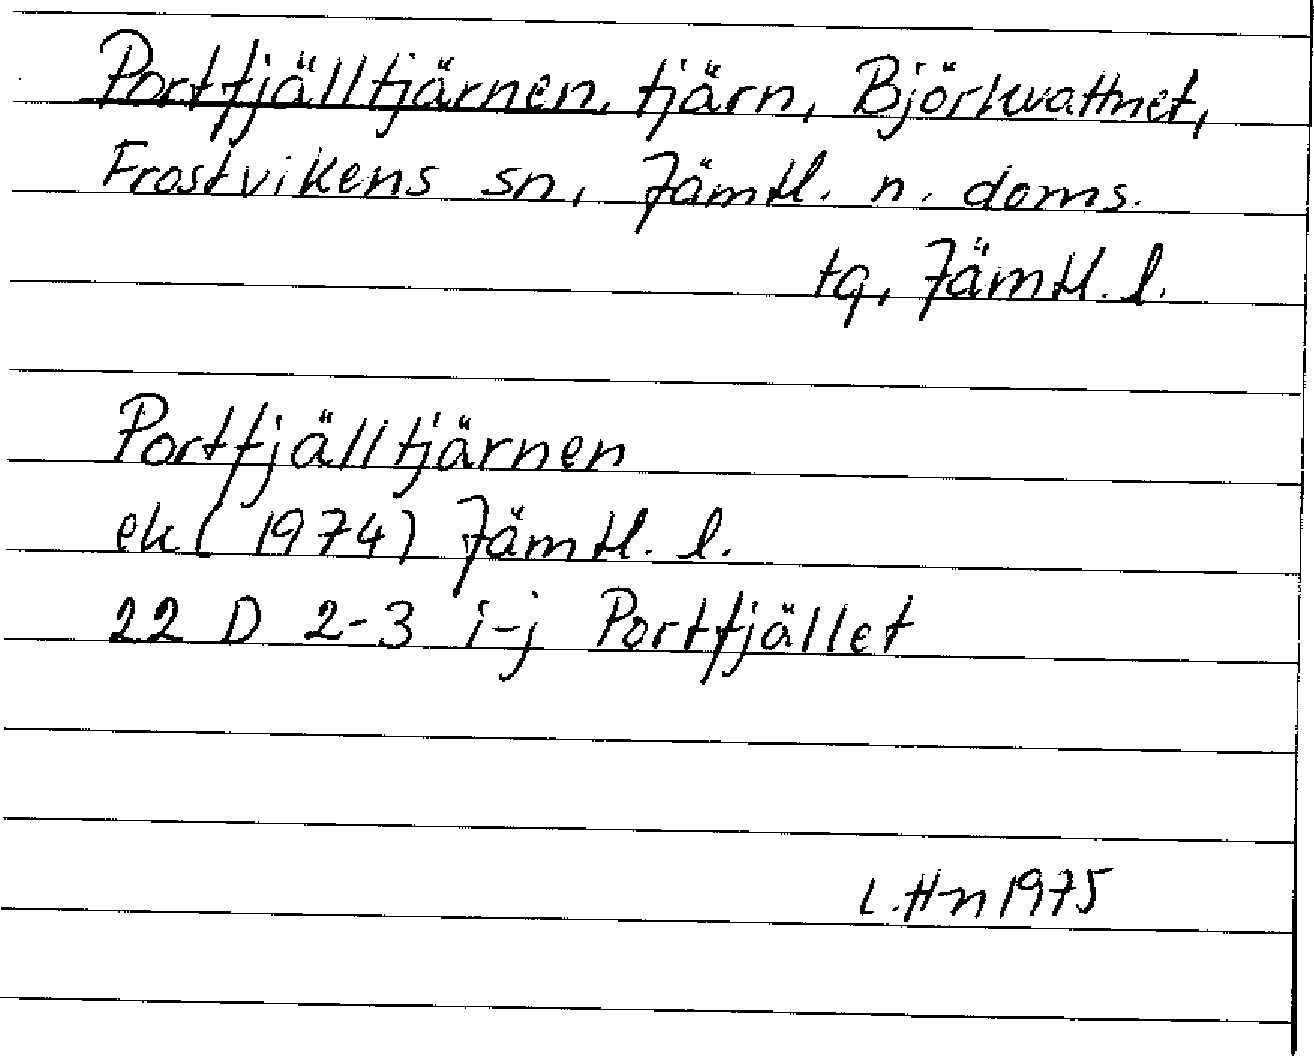 Portfjälltjärnen, tjärn, Björkvattnet,
Frostvikens sn, Jämtl. n. doms.
tg, Jämtl. l.
Portfjälltjärnen
ek (1974) Jämtl. l.
22 D 2-3 i-j Portfjället
L. H-n 1975